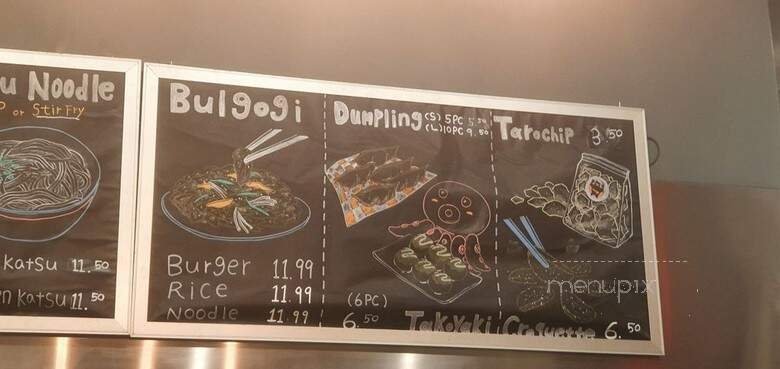 u Noodle
or Stir Fry
Katsu 11.50
n Katsu 11.50
Bulgogi
Burger 11.99
Rice 11.99
Noodle 11.99
Dumpling (S) 5PC 5.50
(L) 10PC 9.50
(6PC)
6.50
Takoyaki
Tarochip 3.50
Croquette 6.50
menupix